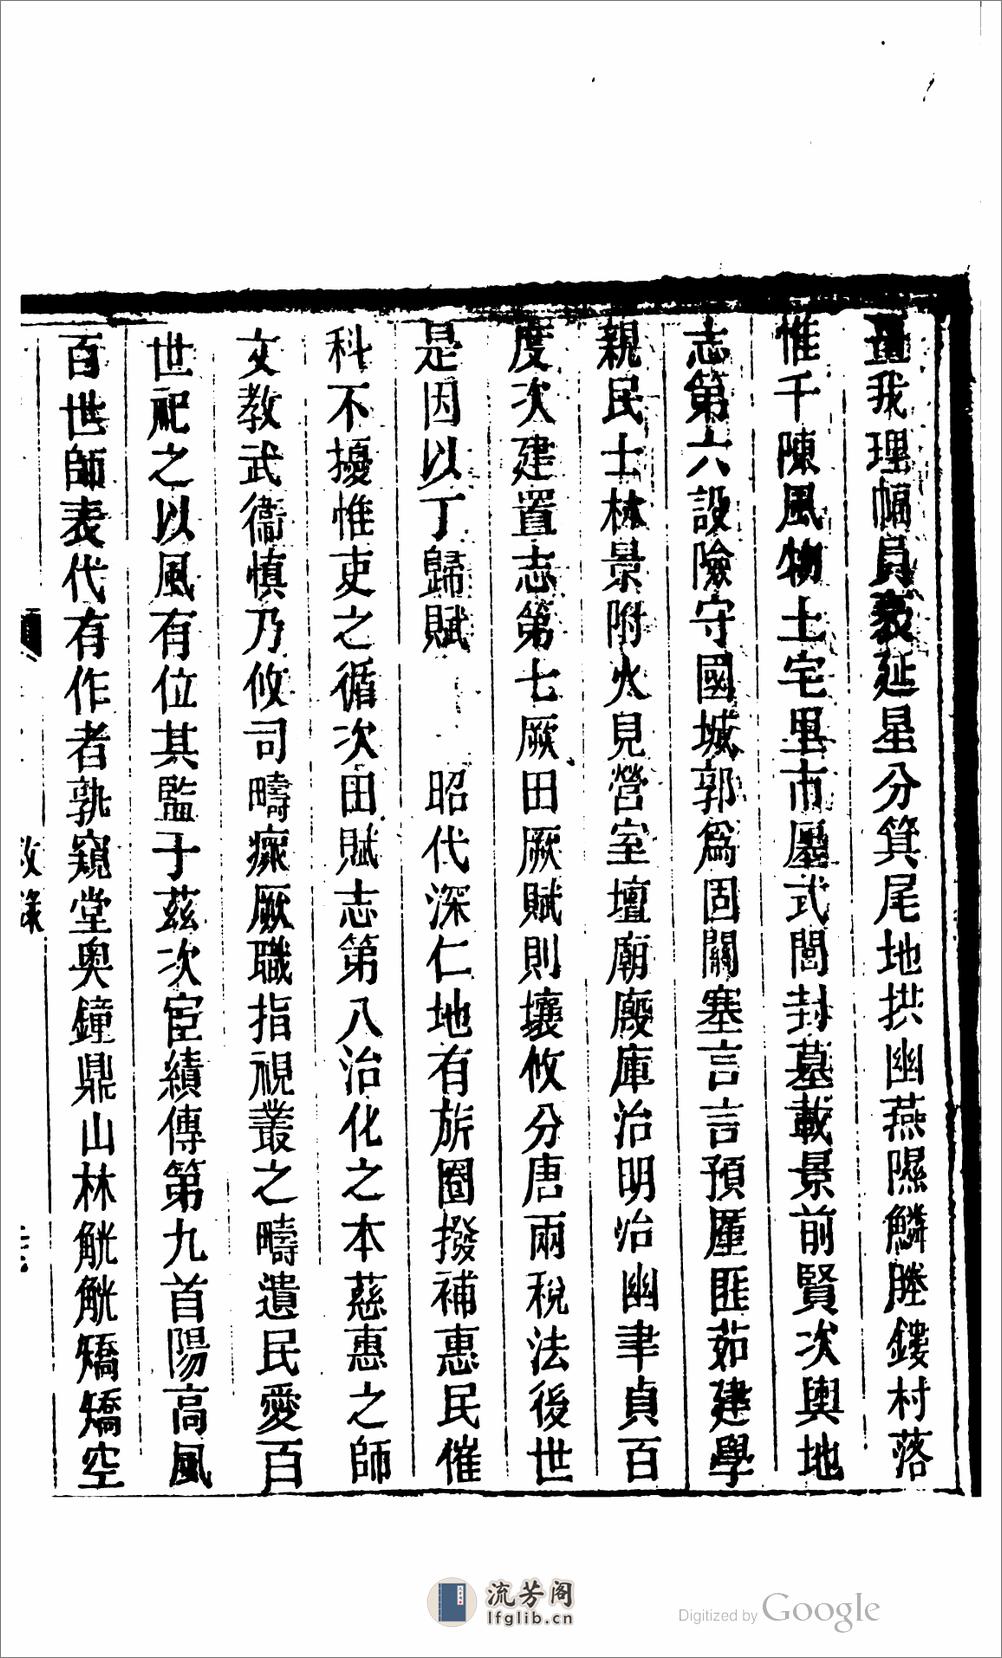 我理幅員敦延星分箕尾地拱幽燕隰鱗塍鏤村落
惟千陳風物土宅里市廛式閭封墓載景前賢次輿地
志第六設險守國城郭為固關塞言言預匪茹建學
親民士林景附火見營室壇廟廢庫治明治幽聿貞百
度次建置志第七厥田厥賦則壤攸分唐兩稅法後世
是因以丁歸賦　昭代深仁地有旂圈撥補惠民催
科不擾惟吏之循次田賦志第八治化之本慈惠之師
文教武衛慎乃攸司疇瘝厥職指視叢之疇遺民愛百
世祀之以風有位其監于茲次宦績傳第九首陽高風
百世師表代有作者孰窺堂奥鐘鼎山林觥觥矯矯空